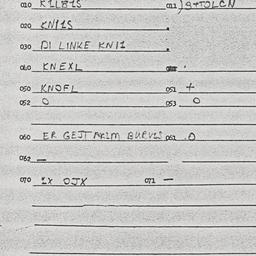 010 KILBIS 011 )STOLCN
020 KNIIS .
030 DI LINKE KNII .
040 KNEXL .
050 KNOFL 051 +
052 O 053 O
060 ER GEJT AKIM 061 O
062 —
070 IX OJX 071 —